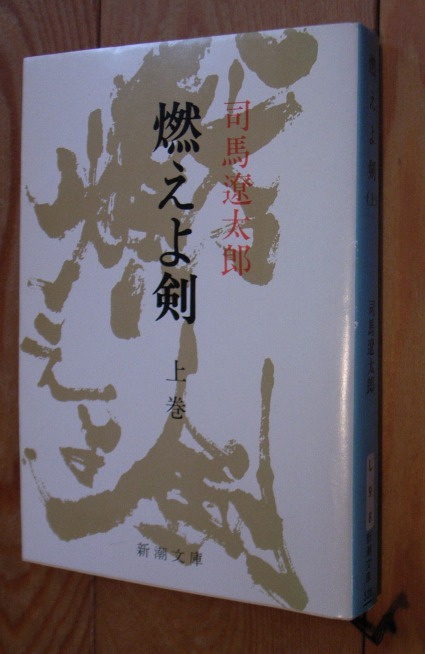 司馬遼太郎
燃えよ剣
上巻
新潮文庫
燃えよ剣
燃えよ剣
司馬遼太郎
新潮文庫